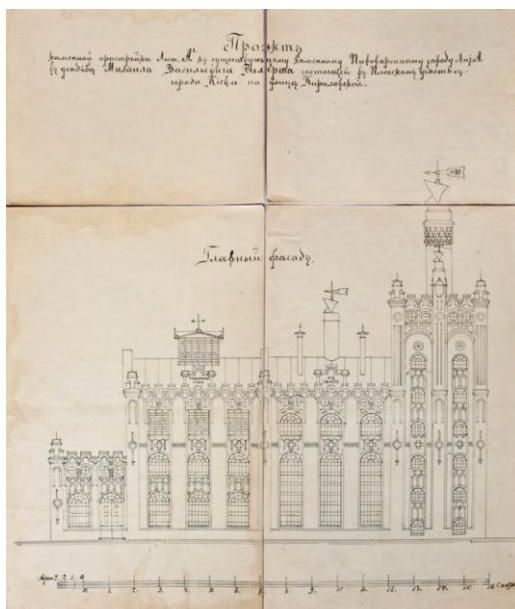 Проэктъ
каменной пристройки Лит. А¹ къ существующему каменному Пивоваренному заводу Лит. А
въ усадьбѣ Михаила Васильевича состоящей въ Плоскомъ участкѣ
города Кіева по улицѣ Кириловской.
Главный фасадъ.